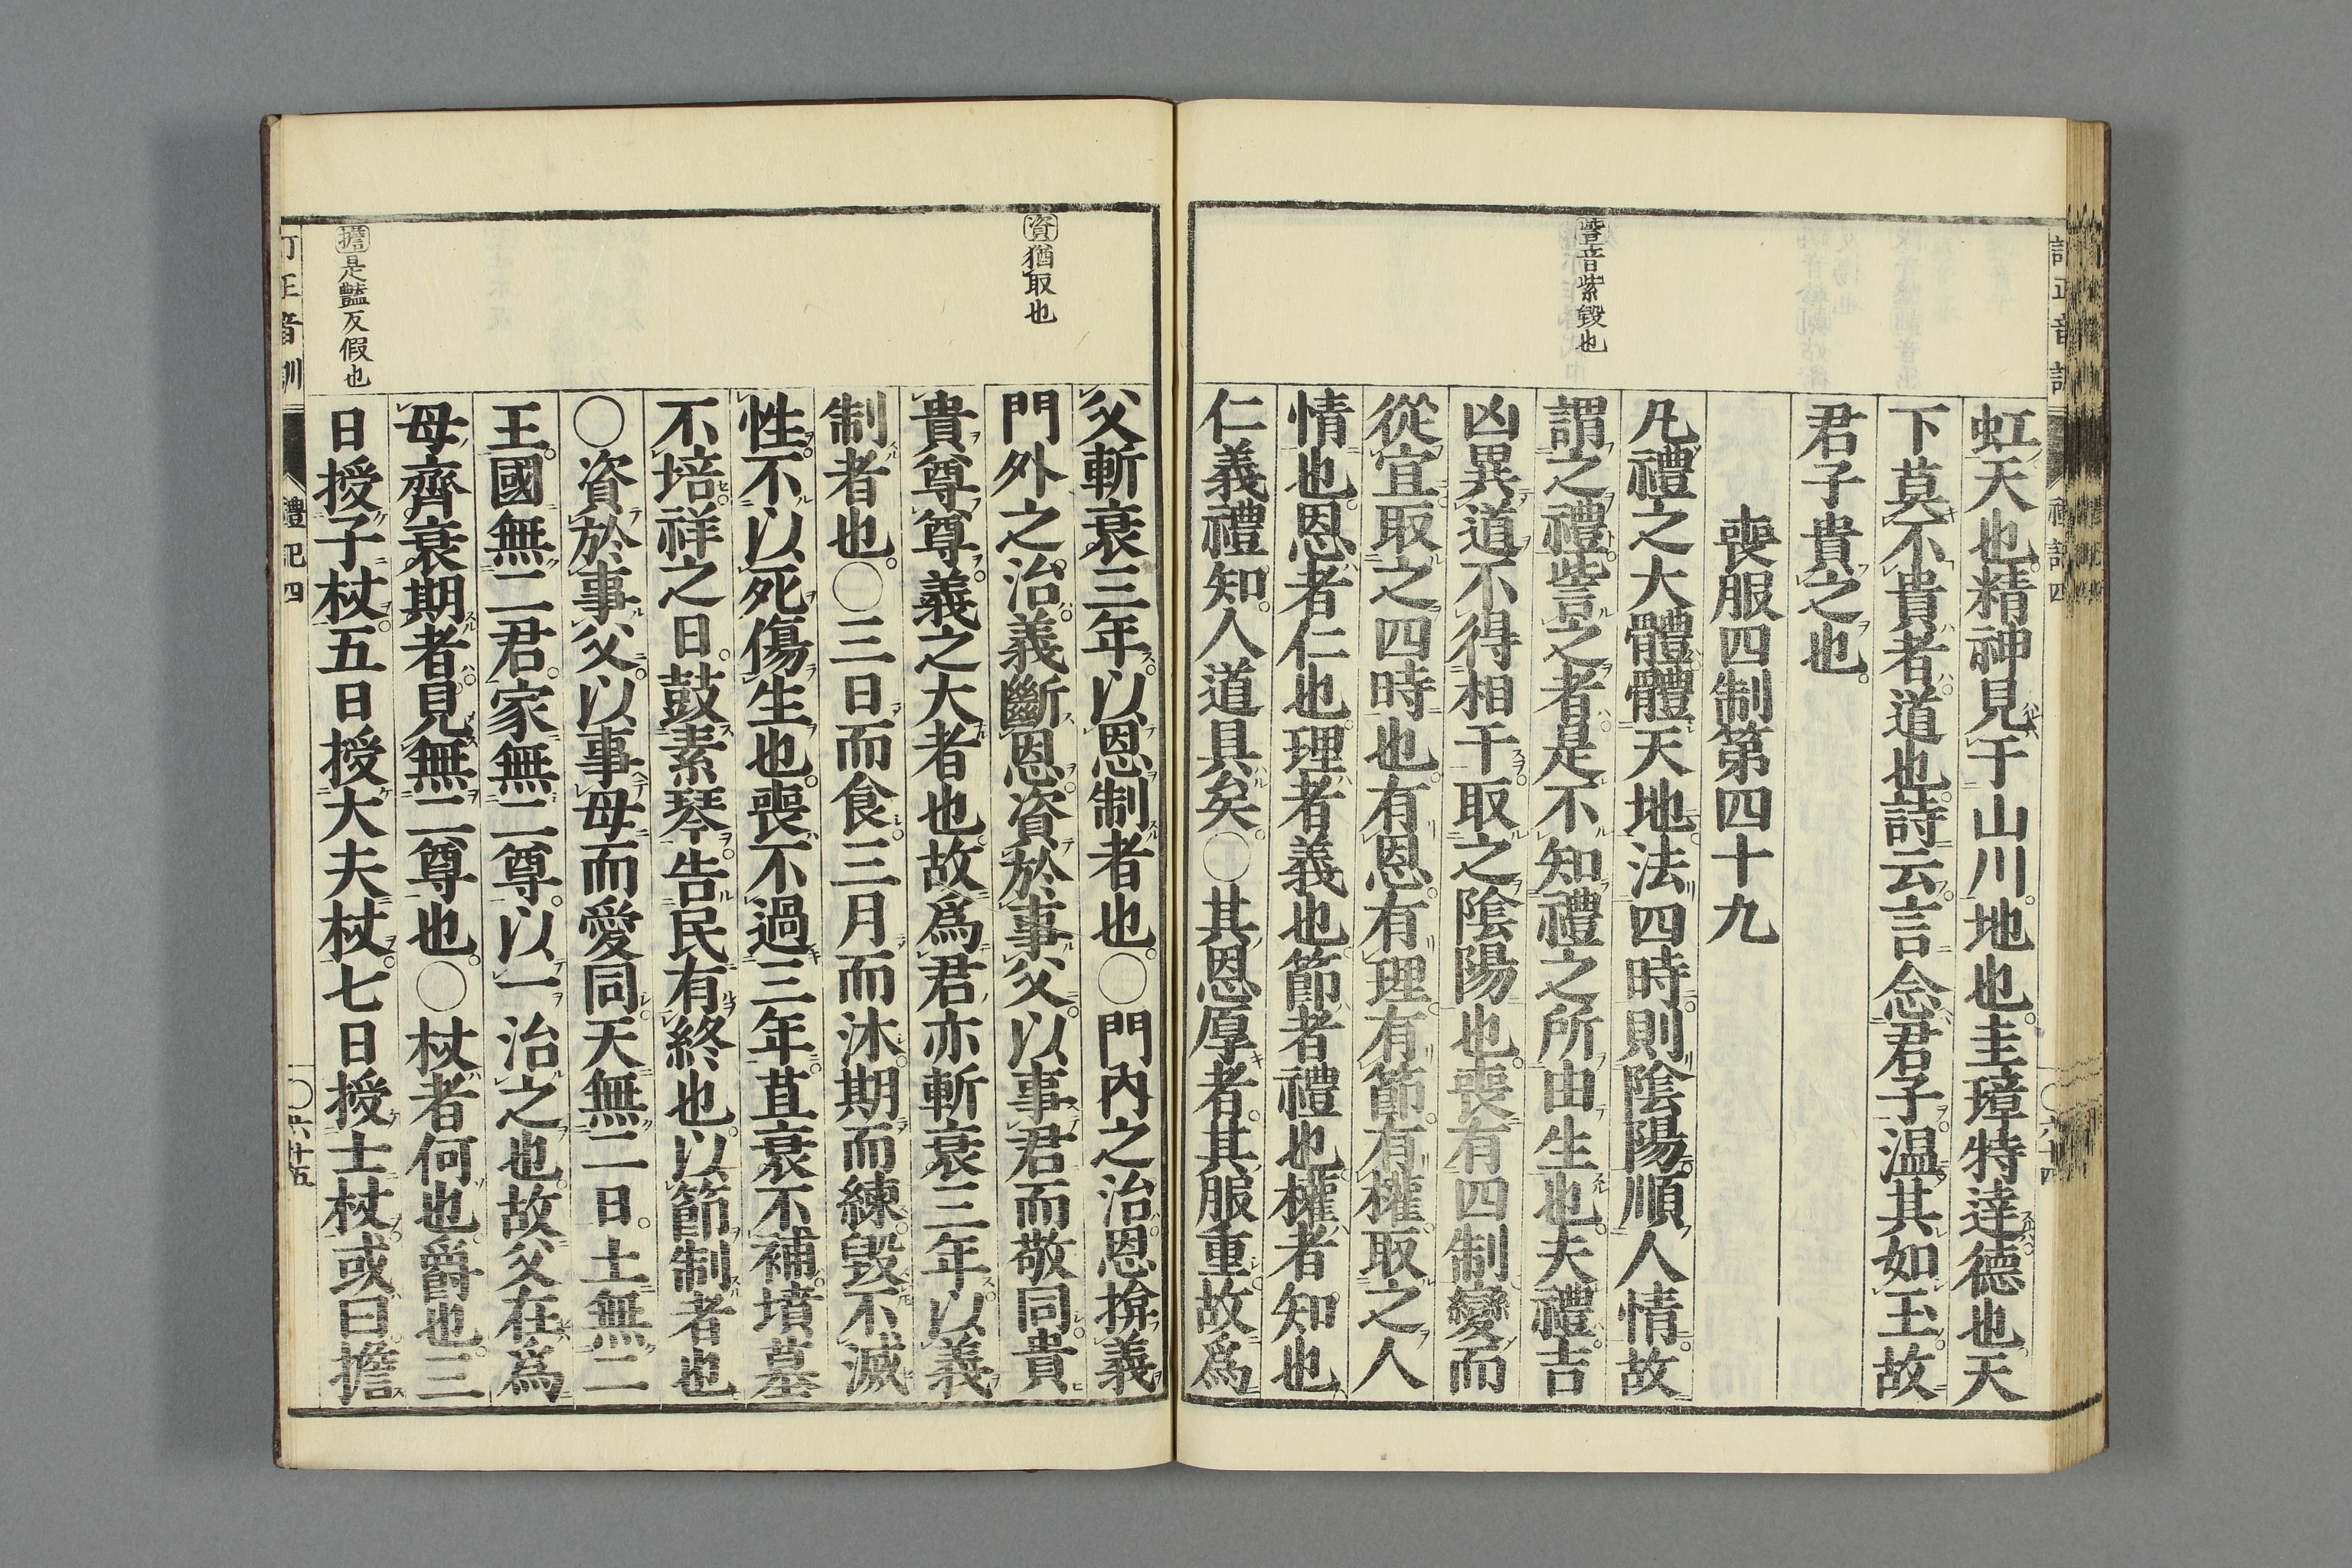 訾音紫毀也
虹天也精神見于山川地也圭璋特達德也天
下莫不貴者道也詩云言念君子温其如玉故
君子貴之也
喪服四制第四十九
凡禮之大體體天地法四時則陰陽順人情故
謂之禮訾之者是不知禮之所由生也夫禮吉
凶異道不得相干取之陰陽也喪有四制變而
從宜取之四時也有恩有理有節有權取之人
情也恩者仁也理者義也節者禮也權者知也
仁義禮知人道具矣○其恩厚者其服重故爲
資猶取也
擔是豔反假也
父斬衰三年以恩制者也○門內之治恩揜義
門外之治義斷恩資於事父以事君而敬同貴
貴尊尊義之大者也故爲君亦斬衰三年以義
制者也○三日而食三月而沐期而練毀不滅
性不以死傷生也喪不過三年苴衰不補墳墓
不培祥之日鼓素琴告民有終也以節制者也
○資於事父以事母而愛同天無二日土無二
王國無二君家無二尊以一治之也故父在爲
母齊衰期者見無二尊也○杖者何也爵也三
日授子杖五日授大夫杖七日授士杖或曰擔
訂正音訓
禮記四
○六十五